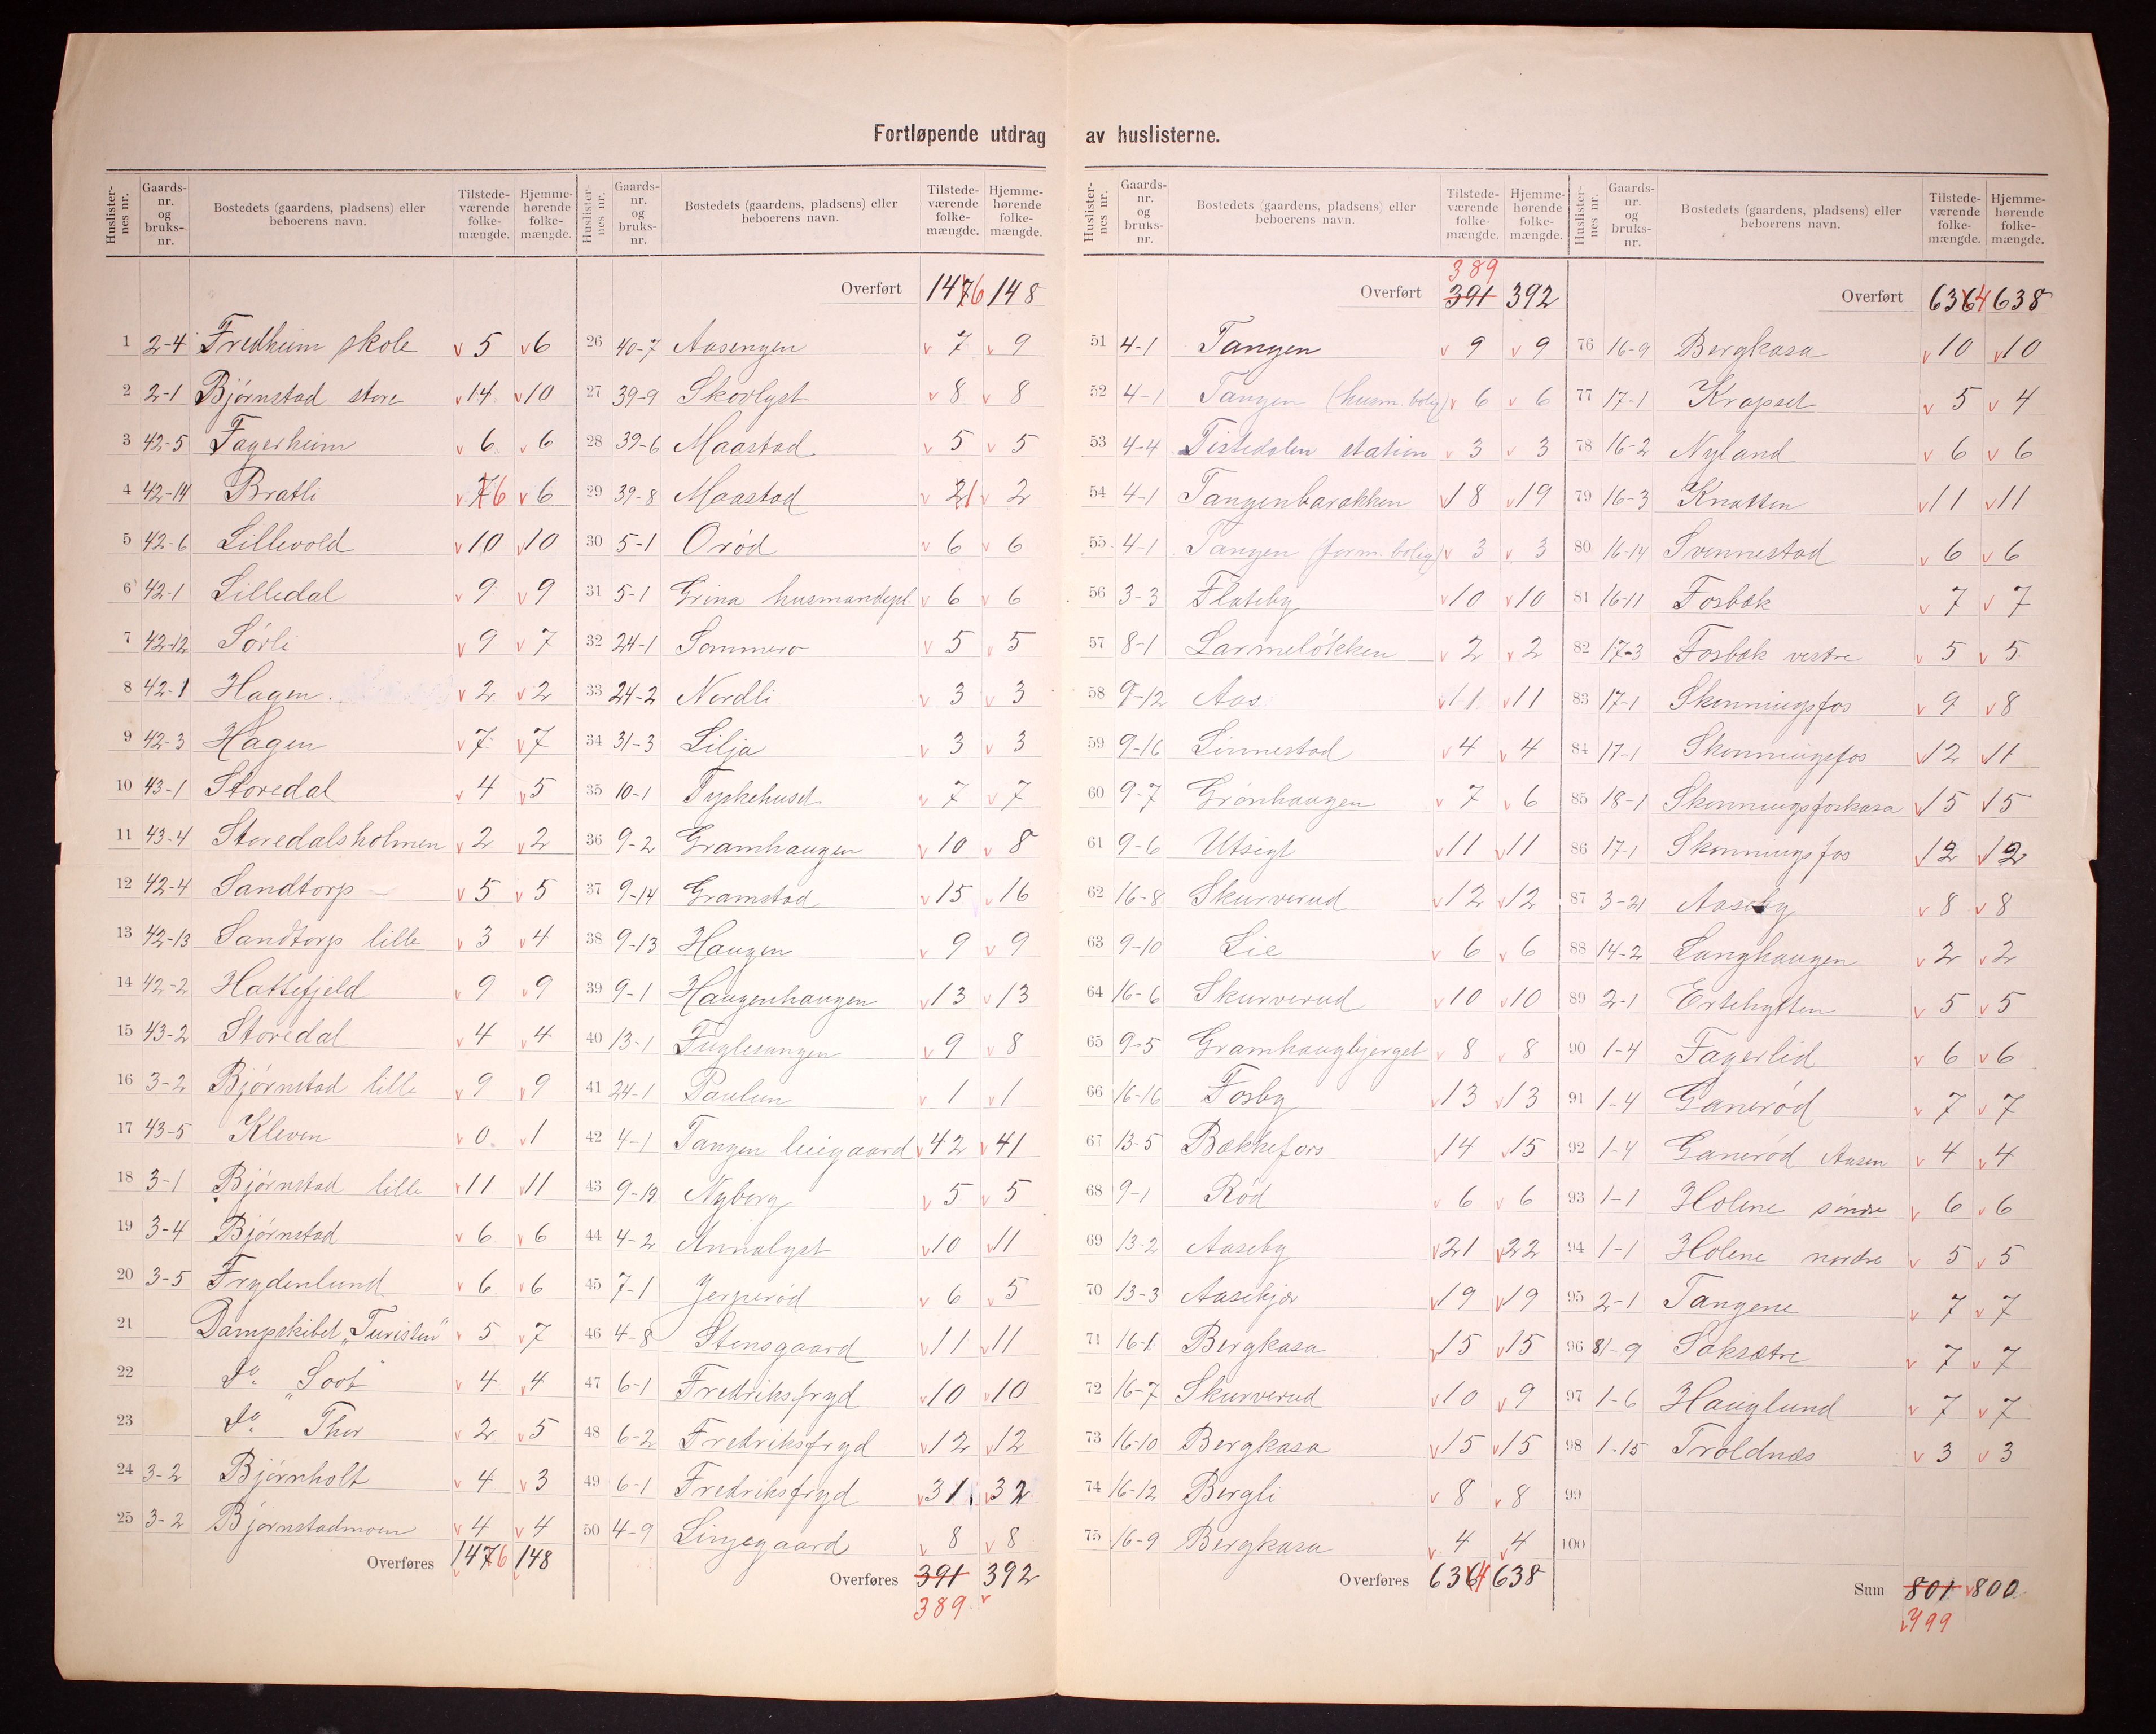 Fortløpende utdrag av huslisterne.
Huslisternes nr. Gaards-nr. og bruks-nr. Bostedets (gaardens, pladsens) eller beboerens navn. Tilstedeværende folkemængde. Hjemmehørende folkemængde.
1 2-4 Fredheim skole 5 6
2 2-1 Bjørnstad store 14 10
3 42-5 Fagerheim 6 6
4 42-14 Bratli 7 6 6
5 42-6 Lillevold 10 10
6 42-1 Lilledal 9 9
7 42-12 Sørli 9 7
8 42-1 Hagen 2 2
9 42-3 Hagen 7 7
10 43-1 Storedal 4 5
11 43-4 Storedalsholmen 2 2
12 42-4 Sandtorp 5 5
13 42-13 Sandtorp lille 3 4
14 42-2 Hattefjeld 9 9
15 43-2 Storedal 4 4
16 3-2 Bjørnstad lille 9 9
17 43-5 Kleven 0 1
18 3-1 Bjørnstad lille 11 11
19 3-4 Bjørnstad 6 6
20 3-5 Frydenlund 6 6
21 Dampskibet „Turisten" 5 7
22 Do. „Soot" 4 4
23 Do. Thor 2 5
24 3-2 Bjørnholt 4 3
25 3-2 Bjørnstadmoen 4 4
Overføres 147 6 148
Huslisternes nr. Gaards-nr. og bruks-nr. Bostedets (gaardens, pladsens) eller beboerens navn. Tilstedeværende folkemængde. Hjemmehørende folkemængde.
Overført 147 6 148
26 40-7 Aasengen 7 9
27 39-9 Skovlyst 8 8
28 39-6 Maastad 5 5
29 39-8 Maastad 2 1 2
30 5-1 Orød 6 6
31 5-1 Grina husmandspl. 6 6
32 24-1 Sommero 5 5
33 24-2 Nordli 3 3
34 31-3 Lilja 3 3
35 10-1 Tyskehuset 7 7
36 9-2 Gramhaugen 10 8
37 9-14 Gramstad 15 16
38 9-13 Haugen 9 9
39 9-1 Haugenhaugen 13 13
40 13-1 Fuglesangen 9 8
41 24-1 Paulun 1 1
42 4-1 Tangen leiegaard 42 41
43 9-19 Nyborg 5 5
44 4-2 Annalyst 10 11
45 7-1 Jerperød 6 5
46 4-8 Stensgaard 11 11
47 6-1 Fredriksfryd 10 10
48 6-2 Fredriksfryd 12 12
49 6-1 Fredriksfryd 31 32
50 4-9 Linjegaard 8 8
Overføres 391 392
389
Huslisternes nr. Gaards-nr. og bruks-nr. Bostedets (gaardens, pladsens) eller beboerens navn. Tilstedeværende folkemængde. Hjemmehørende folkemængde.
389
Overført 391 392
51 4-1 Tangen 9 9
52 4-1 Tangen (husm. bolig) 6 6
53 4-4 Tistedalen station 3 3
54 4-1 Tangenbarakken 18 19
55 4-1 Tangen (form. bolig) 3 3
56 3-3 Flateby 10 10
57 8-1 Larmeløkken 2 2
58 9-12 Aas 11 11
59 9-16 Linnestad 4 4
60 9-7 Grønhaugen 7 6
61 9-6 Utsigt 11 11
62 16-8 Skurverud 12 12
63 9-10 Lie 6 6
64 16-6 Skurverud 10 10
65 9-5 Gramhaugbjerget 8 8
66 16-16 Fosby 13 13
67 13-5 Bækkefors 14 15
68 9-1 Rød 6 6
69 13-2 Aaseby 21 22
70 13-3 Aasekjær 19 19
71 16-1 Bergkasa 15 15
72 16-7 Skurverud 10 9
73 16-10 Bergkasa 15 15
74 16-12 Bergli 8 8
75 16-9 Bergkasa 4 4
Overføres 636 4 638
Huslisternes nr. Gaards-nr. og bruks-nr. Bostedets (gaardens, pladsens) eller beboerens navn. Tilstedeværende folkemængde. Hjemmehørende folkemængde.
Overført 636 4 638
76 16-9 Bergkasa 10 10
77 17-1 Krapset 5 4
78 16-2 Nyland 6 6
79 16-3 Knatten 11 11
80 16-14 Svinnestad 6 6
81 16-11 Fosbæk 7 7
82 17-3 Fosbæk vestre 5 5
83 17-1 Skonningsfos 9 8
84 17-1 Skonningsfos 12 11
85 18-1 Skonningsfoskasa 15 15
86 17-1 Skonningsfos 12 12
87 3-21 Aaseby 8 8
88 14-2 Langhaugen 2 2
89 2-1 Ertehytten 5 5
90 1-4 Fagerlid 6 6
91 1-4 Ganerød 7 7
92 1-4 Ganerød Aasen 4 4
93 1-1 Holene søndre 6 6
94 1-1 Holene nordre 5 5
95 2-1 Tangene 7 7
96 31-9 Saksætre 7 7
97 1-6 Hauglund 7 7
98 1-15 Troldnæs 3 3
99
100
Sum 801 800
799